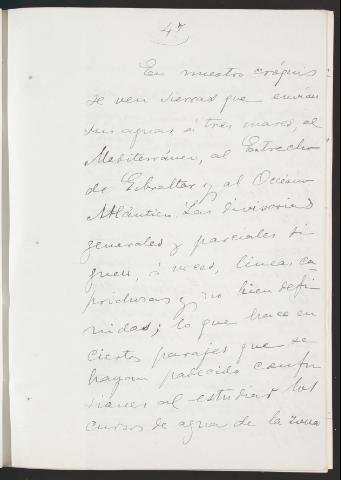 47
En nuestro cróquis
se ven sierras que envían
sus aguas á tres mares, al
Mediterráneo, al Estrecho
de Gibraltar y al Océano
Atlántico. Las divisorias
generales y parciales si-
guen, á veces, líneas ca-
prichosas y no bien defi-
nidas; lo que hace en
ciertos parajes que se
hayan padecido confu-
siones al estudiar los
cursos de agua de la zona